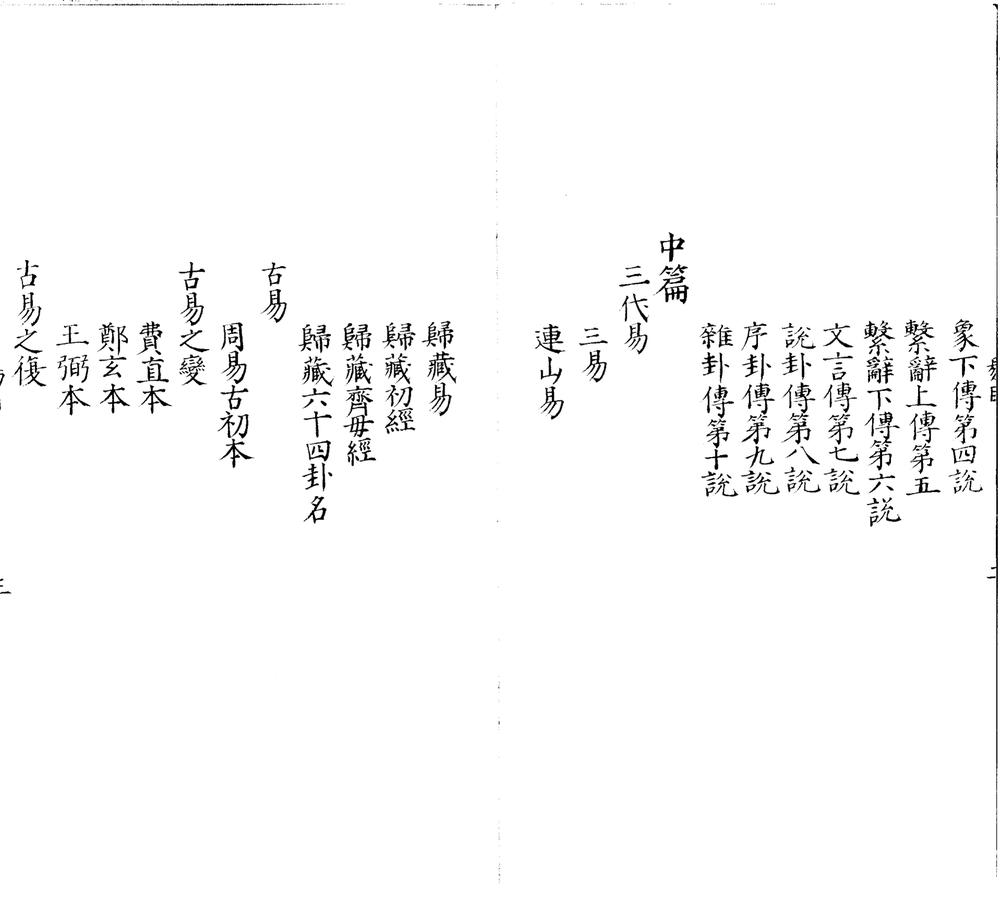 象下傳第四說
繫辭上傳第五
繫辭下傳第六說
文言傳第七說
說卦傳第八說
序卦傳第九說
雜卦傳第十說
中篇
三代易
三易
連山易
歸藏易
歸藏初經
歸藏齊毋經
歸藏六十四卦名
古易
周易古初本
古易之變
費直本
鄭玄本
王弼本
古易之復